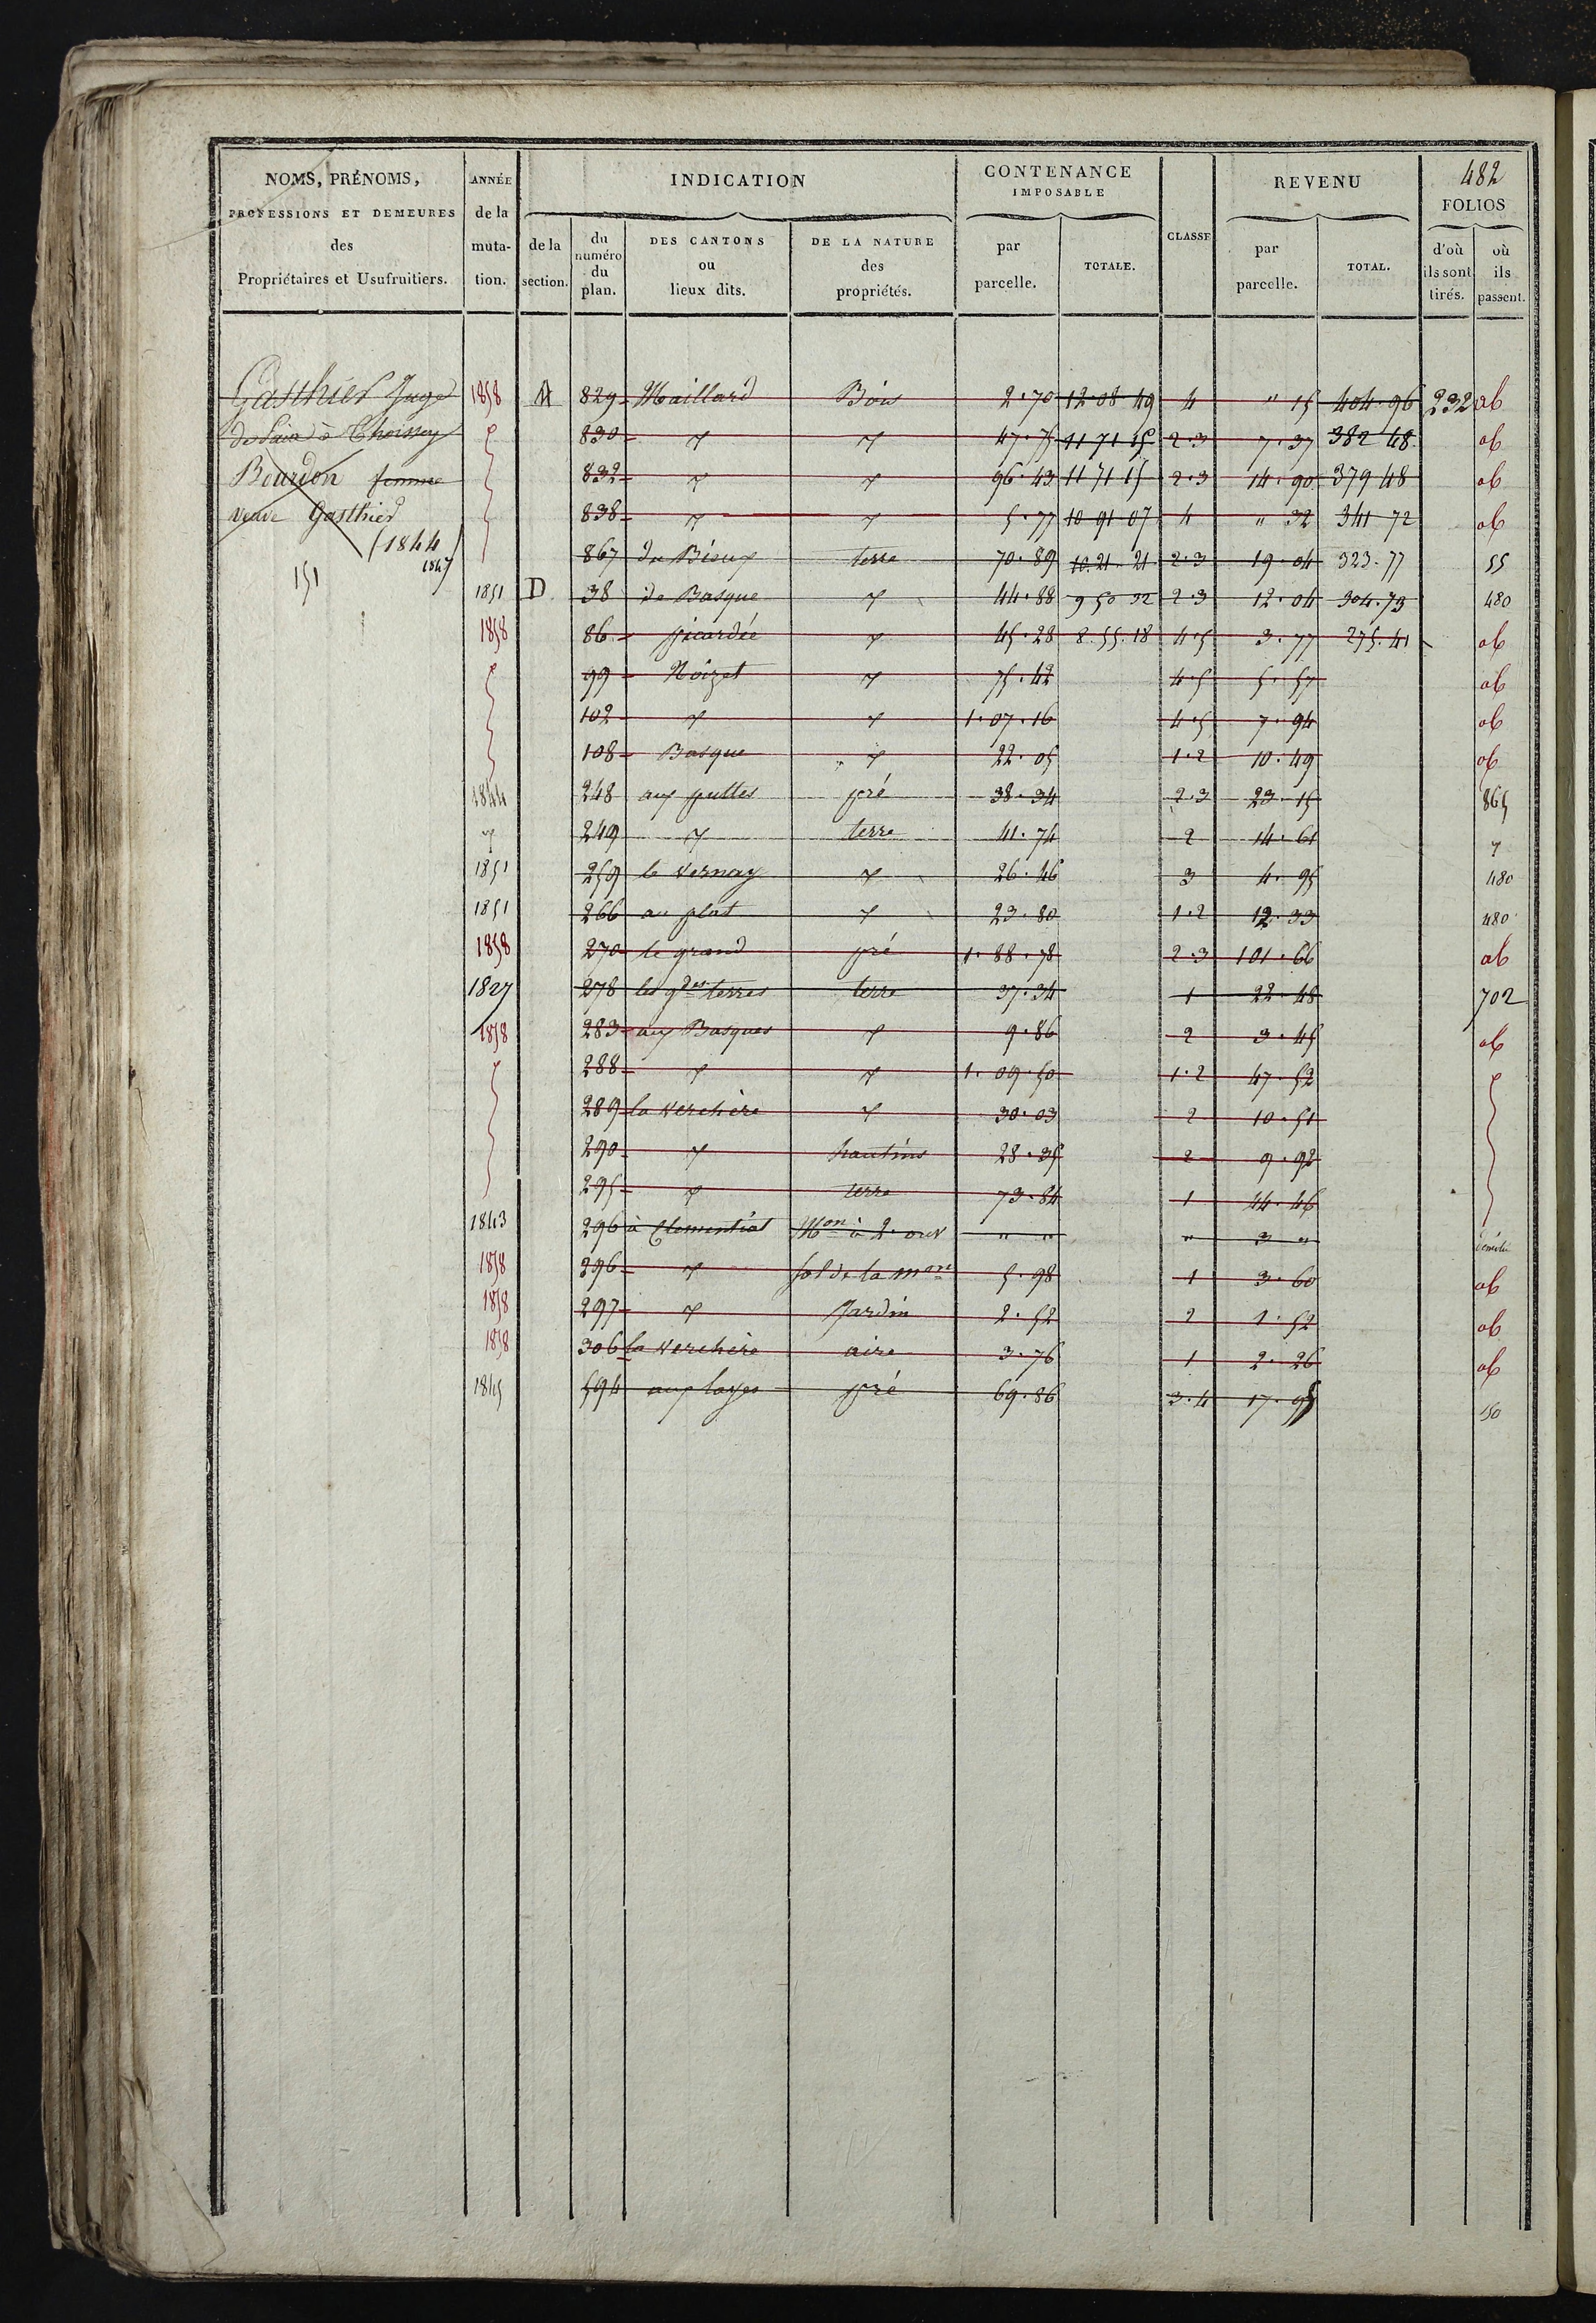 482
NOMS, PRÉNOMS, PROFESSIONS ET DEMEURES des Propriétaires et Usufruitiers.
ANNÉE de la muta- tion.
INDICATION
de la section.
du numéro du plan.
DES CANTONS ou lieux dits.
DE LA NATURE des propriétés.
CONTENANCE IMPOSABLE
par parcelle.
TOTALE.
CLASSE
REVENU
par parcelle.
TOTAL.
FOLIOS
d'où ils sont tirés.
où ils passent.
Gasthier Juge
de Paix à Thoissey
Bourdon femme
veuve Gasthier
(1844
1847
151
1858 A 829 Maillard Bois 2.70 12 08 49 4 " 15 404.96 232 ab
830 7 7 47.75 11 71 15 2.3 7.37 382 48 ab
832 7 7 96.43 11 71 15 2.3 14.90 379 48 ab
838 7 7 5.77 10 91 07 4 " 32 341 72 ab
867 du Bieux terre 70.89 10.21.21 2.3 19.04 323.77 55
1851 D 38 de Basque 7 44.88 9 50 32 2.3 12.04 304.73 480
1858 86 picardée 7 45.28 8.55.18 4.5 3.77 275.41 ab
99 Noizet 7 75.42 4.5 5.57 ab
102 7 7 1.07.16 4.5 7.94 ab
108 Basque 7 22.05 1.2 10.49 ab
1844 248 aux pultes pré 38.34 2.3 23.15 865
7 249 7 terre 41.74 2 14.61 7
1851 259 le vernay 7 26.46 3 4.95 480
1851 266 au plat 7 23.80 1.2 12.33 480
1858 270 le grand pré 1.88.78 2.3 101.66 ab
1827 278 les gdes terres terre 37.34 1 22.48 702
1858 283 aux Basques 7 9.86 2 3.45 ab
288 7 7 1.09.50 1.2 47.52
289 la verchère 7 30.03 2 10.51
290 7 hautins 28.35 2 9.92
295 7 terre 73.84 1 44.46
1843 296 à Clementiat Mon à 2 ouv " " " 3 " démolie
1858 296 7 sol de la mon 5.98 1 3.60 ab
1858 297 7 Jardin 2.52 2 1.52 ab
1858 306 la verchère aire 3.76 1 2.26 ab
1845 594 aux layes pré 69.86 3.4 17.95 150